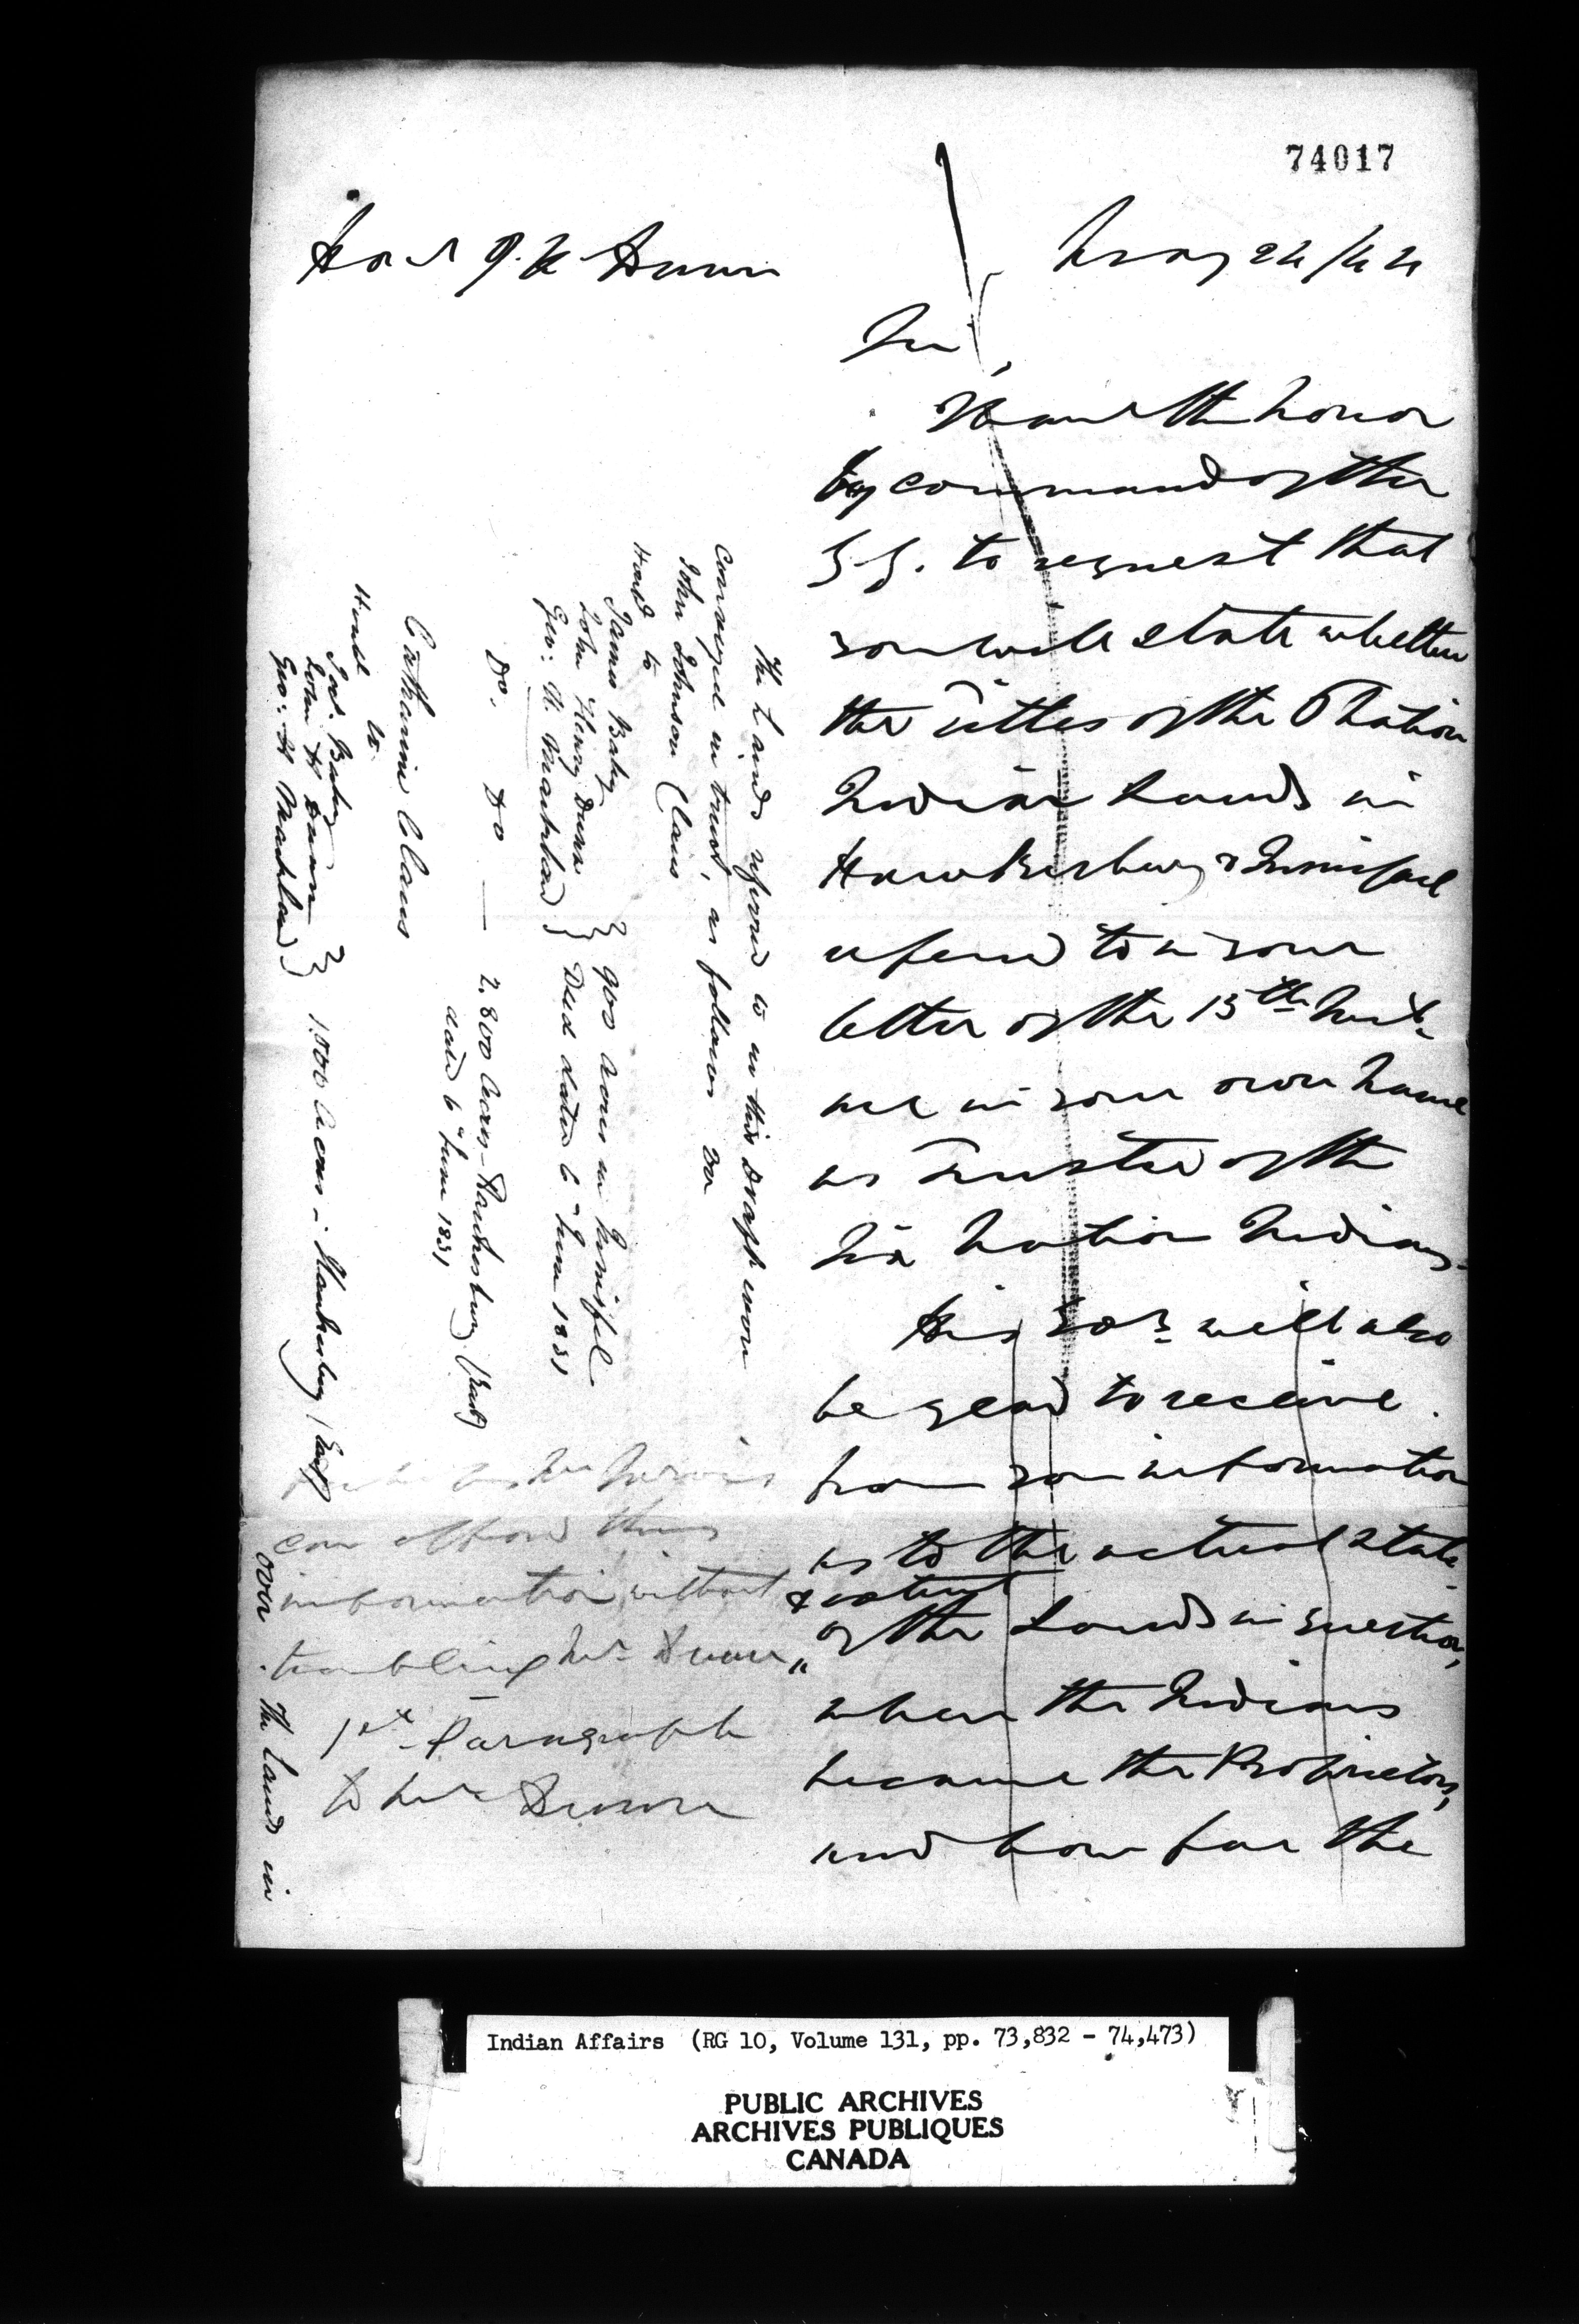 74017
Honl J. H. Dunn
May 24/42
Sir,
I have the honor
by command of the
G. G. to request that
you will state whether
the titles of the 6 Nation
Indian Lands in
Hawkesbury & Innisfil
referred to in your
letter of the 15th Inst.
are in your own name
as Trustee of the
Six Nation Indians.
His Exy will also
be glad to receive
from you information
as to the actual state
& extent
of the Lands in question,
when the Indians
became the Proprietors,
and how far the
The Lands referred to in this Draft were
Conveyed in trust, as follows
John Johnson Claus
Honl to
James Baby
John Henry Dunn
Geo: H. Markland
900 Acres in Innisfil
Deed dated 6th June 1831
Do. Do
2.800 Acres - Hawkesbury (East)
dated 6th June 1831
Catharine Claus
Honl to
Jas. Baby
John H Dunn
Geo: H Markland
1.000 Acres - Hawkesbury (East)
over The Lands in
Mr Jarvis
can afford this
information without
troubling Mr Dunn
1st Paragraph
to Mr Dunn
Indian Affairs (RG 10, Volume 131, pp. 73,832 - 74,473)
PUBLIC ARCHIVES
ARCHIVES PUBLIQUES
CANADA